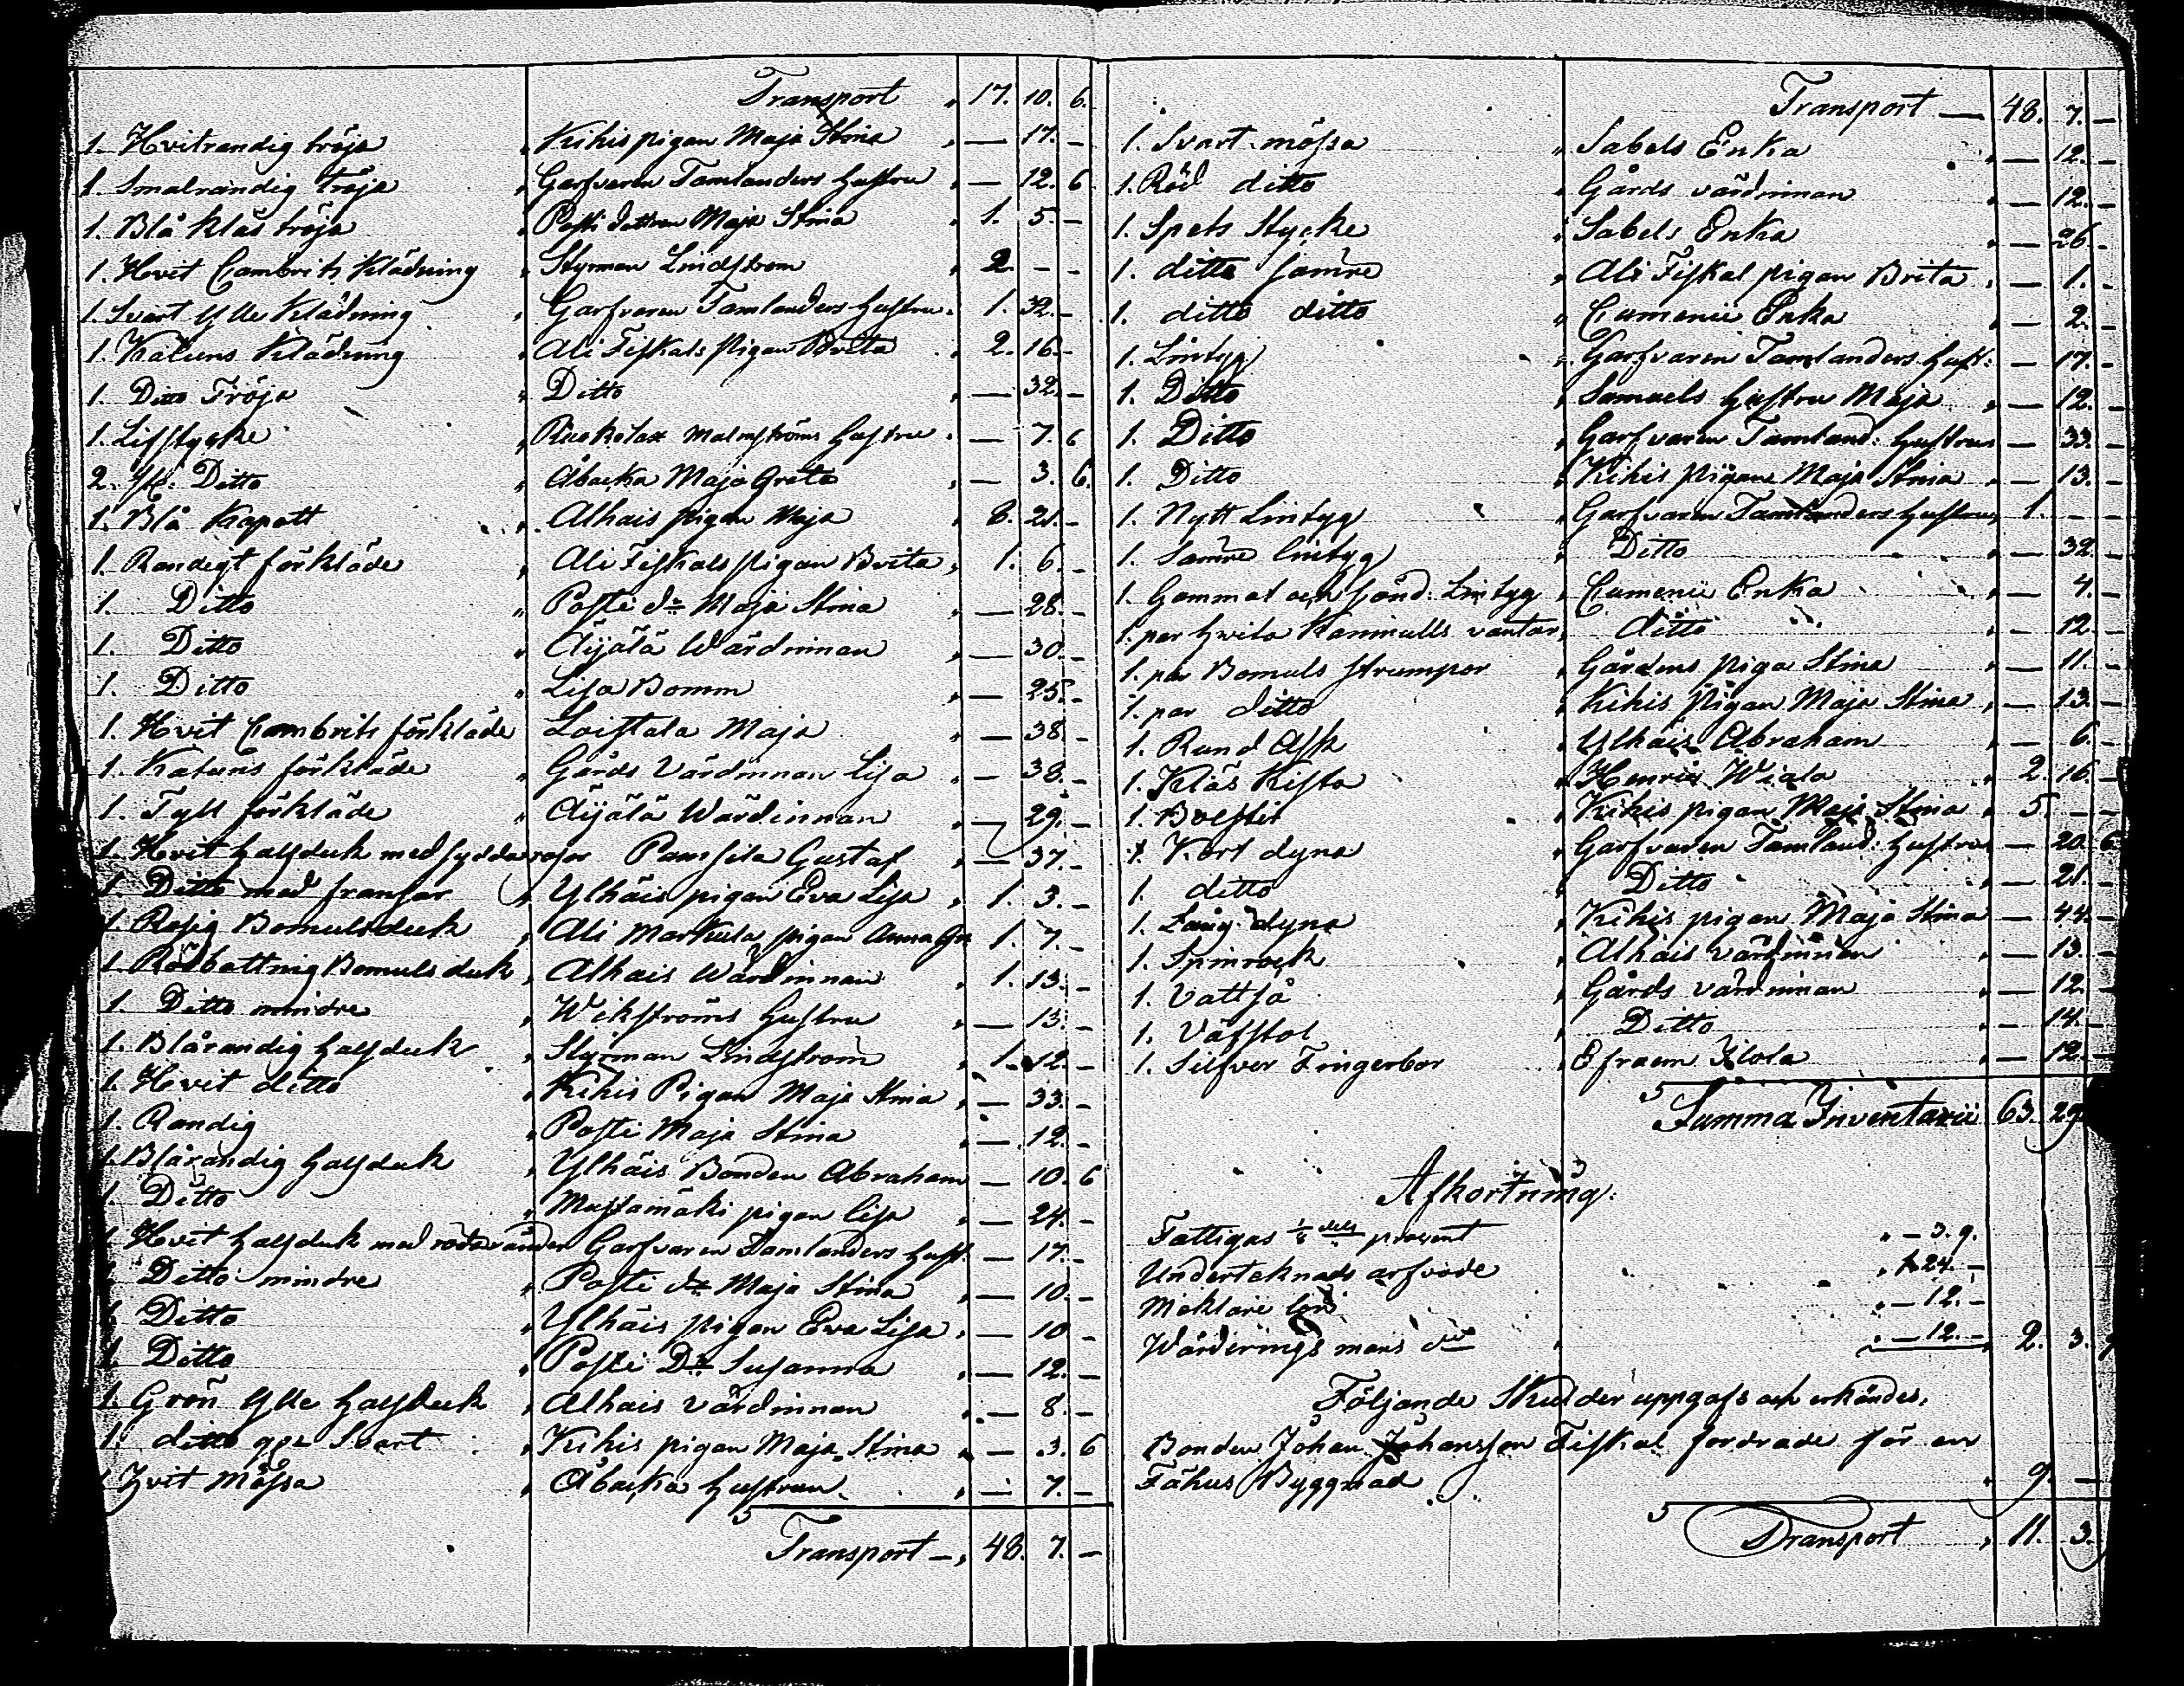 Transport " 17. 10. 6.
1. Hvitrandig tröja " Kihis pigan Maja Stina " — 17. –
1. Smalrandig tröja " Garfvaren Tamlanders hustru " — 12. 6
1. Blå kläs tröja " Posti dottren Maja Stina " 1. 5. –
1. Hvit Cambrits Klädning " Styrman Lindstrom " 2. – –
1. Svart Ylle Klädning " Garfvaren Tamlanders hustru " 1. 32. –
1. Katuns Klädning " Ali Fiskals Pigan Brita " 2. 16. –
1. Ditto Tröja " Ditto " — 32. –
1. Lifstycke " Malmströms hustru " — 7. 6
2. st. Ditto " Åbacka Maja Greta " — 3. 6.
1. Blå Kapott " Alhais pigan Maja " 8. 21. –
1. Randigt förkläde " Ali Fiskals pigan Brita " 1. 6. –
1. Ditto " Posti dr Maja Stina " — 28. –
1. Ditto " Äijälä Wärdinnan " — 30. –
1. Ditto " Lisa Bomm " — 25. –
1. Hvit Cambrits förkläde Loistala Maja " — 38. –
1. Katuns förkläde " Gårds Värdinnan Lisa " — 38. –
1. Tyll förkläde " Äijälä Wärdinnan " — 29. –
1. Hvit halsduk med sydda rosor Pamsila Gustaf " — 37. –
1. Ditto med fransar " Ylhäis pigan Eva Lisa " 1. 3. –
1. Rosig Bomulsduk " Ali Markula pigan Anna Gr 1. 7. –
1. Rödbottnig Bomuls duk " Alhais Wärdinnan " 1. 13. –
1. Ditto mindre " Wikströms hustru " — 13. –
1. Blårandig halsduk " Styrman Lindstrom " 1. 12. –
1. Hvit ditto " Kihis Pigan Maja Stina " — 33. –
1. Randig " Posti Maja Stina " — 12. –
1. Blårandig halsduk " Ylhäis Bonden Abraham — 10. 6
1. Ditto " Mustamäki pigan Lisa " — 24. –
1. Hvit halsduk med röda ränder Garfvaren Tamlanders hust. — 17. –
1. Ditto mindre " Posti dr Maja Stina " — 10. –
1. Ditto " Ylhäis pigan Eva Lisa " — 10 –
1. Ditto " Posti Dr Susanna " — 12. –
1. Grön Ylle halsduk " Alhais värdinnan " — 8. –
1. ditto Svart " Kihis pigan Maja Stina " — 3. 6
1. Hvit Mössa " Åbacka hustrun " — 7. –
Transport – " 48. 7. –
Transport — 48. 7. –
1. Svart mössa " Sabels Enka " — 12. –
1. Röd ditto " Gårds värdinnan — 12. –
1. Spets Stycke " Sabels Enka " — 26. –
1. ditto sämre " Ali Fiskal pigan Brita " — 1. –
1. ditto ditto " Cumenii Enka " — 2. –
1. Lintyg " Garfvaren Tamlanders hust: — 17. –
1. Ditto " Samuels hustru Maja " — 12. –
1. Ditto " Garfvaren Tamland: hustrun — 33. –
1. Ditto " Kihis pigan Maja Stina " — 13. –
1. Nytt Lintyg " Garfvaren Tamlanders hustru " 1. – –
1. Sämre lintyg " Ditto " — 32. –
1. Gammat och sönd: Lintyg " Cumenii Enka " — 4. –
1. par hvita Kaninulls vantar " ditto " — 12 –
1. par Bomuls strumpor " Gårdens piga Stina " — 11. –
1. par ditto " Kihis Pigan Maja Stina " — 13. –
1. Rund Ask " Ylhäis Abraham " — 6. –
1. Kläs Kista " Henric Wiala " 2. 16. –
1. Bolster " Kihis pigan Maja Stina " 5. – –
1. Kort dyna " Garfvaren Tamland: hustru — 20. 6
1. ditto " Ditto " — 21. –
1. Lång dyna " Kihis pigan Maja Stina — 44. –
1. Spinrock " Alhais värdinnan " — 13. –
1. Vattså " Gårds värdinnan " — 12. –
1. Väfstol " Ditto " — 14. –
1. Silfver Fingerbor " Efraem Ilola " — 12. –
Summa Inventarii 63. 29
Afkortning:
Fattigas 1/8 dels procent " – 3. 9.
Undertecknads arfvode " 1. 24. –
Meklare lön " – 12. –
Wärderings mans do " – 12. – 2. 3. 9
Följande Skulder uppgafs och erkändes.
Bonden Johan Johansson Fiskal fordrade för en
Fähus Byggnad " 9. –
Transport " 11. 3.